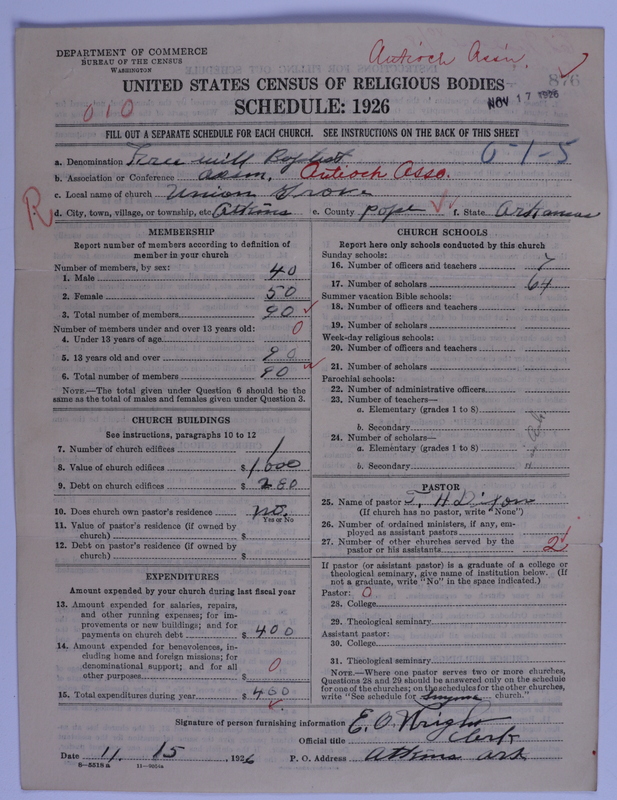 DEPARTMENT OF COMMERCE
BUREAU OF THE CENSUS
WASHINGTON
Antioch Assn.
876
UNITED STATES CENSUS OF RELIGIOUS BODIES
NOV 17 1926
010
SCHEDULE: 1926
FILL OUT A SEPARATE SCHEDULE FOR EACH CHURCH. SEE INSTRUCTIONS ON THE BACK OF THIS SHEET
a. Denomination Free will Baptist
0-1-5
b. Association or Conference assn, Antioch Asso.
c. Local name of church Union Grove
R
d. City, town, village, or township, etc. Atkins e. County pope f. State Arkansas
MEMBERSHIP
Report number of members according to definition of
member in your church
Number of members, by sex:
1. Male 40
2. Female 50
3. Total number of members 90
Number of members under and over 13 years old:
4. Under 13 years of age 0
5. 13 years old and over 90
6. Total number of members 90
NOTE.—The total given under Question 6 should be the
same as the total of males and females given under Question 3.
CHURCH BUILDINGS
See instructions, paragraphs 10 to 12
7. Number of church edifices 1
8. Value of church edifices $1,000
9. Debt on church edifices $280
10. Does church own pastor's residence no.
Yes or No
11. Value of pastor's residence (if owned by
church) $
12. Debt on pastor's residence (if owned by
church) $
EXPENDITURES
Amount expended by your church during last fiscal year
13. Amount expended for salaries, repairs,
and other running expenses; for im-
provements or new buildings; and for
payments on church debt $ 400
14. Amount expended for benevolences, in-
cluding home and foreign missions; for
denominational support; and for all
other purposes $ 0
15. Total expenditures during year $ 400
CHURCH SCHOOLS
Report here only schools conducted by this church
Sunday schools:
16. Number of officers and teachers 7
17. Number of scholars 64
Summer vacation Bible schools:
18. Number of officers and teachers
19. Number of scholars
Week-day religious schools:
20. Number of officers and teachers
21. Number of scholars
Parochial schools:
22. Number of administrative officers
23. Number of teachers—
a. Elementary (grades 1 to 8)
b. Secondary
24. Number of scholars—
a. Elementary (grades 1 to 8)
b. Secondary
PASTOR
25. Name of pastor T. H Dixon
(If church has no pastor, write "None")
26. Number of ordained ministers, if any, em-
ployed as assistant pastors
27. Number of other churches served by the
pastor or his assistants 2
If pastor (or assistant pastor) is a graduate of a college or
theological seminary, give name of institution below. (If
not a graduate, write "No" in the space indicated.)
Pastor: 0
28. College
29. Theological seminary
Assistant pastor:
30. College
31. Theological seminary
NOTE.—Where one pastor serves two or more churches,
Questions 28 and 29 should be answered only on the schedule
for one of the churches; on the schedules for the other churches,
write "See schedule for church."
Signature of person furnishing information E. O. Wright
Official title Clerk
Date 11. 15, 1926 P. O. Address Atkins Ark
8—5518 a